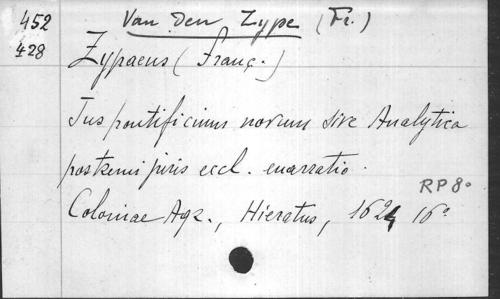 452 Van Den Zype (Fr.)
428 Zypaeus (Franç.)
Jus pontificium novum sive Analytica
postremi juris eccl. enarratio.
RP 8°
Coloniae Agr., Hieratus, 1624 16°